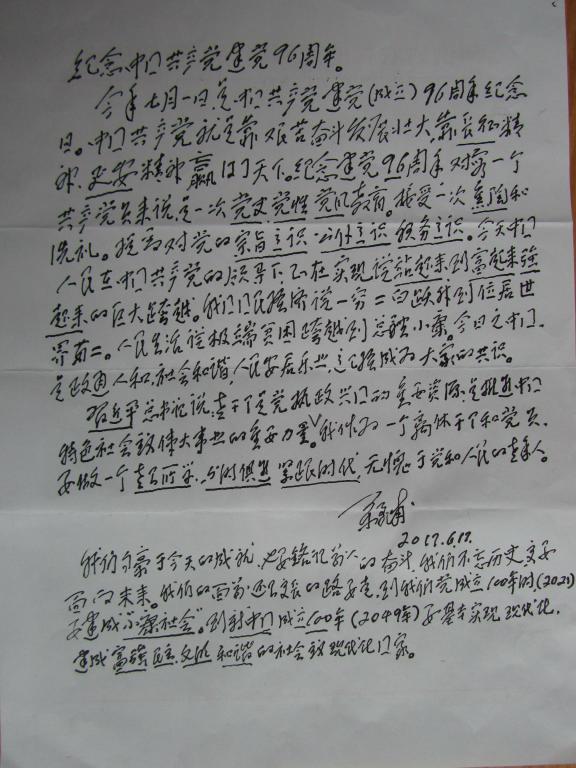 纪念中国共产党建党96周年。
今年七月一日是中国共产党建党(成立)96周年纪念
日。中国共产党就是靠艰苦奋斗发展壮大,靠长征精
神、延安精神赢得了天下。纪念建党96周年对每一个
共产党员来说是一次党史党性党风教育。接受一次熏陶和
洗礼。提高对党的宗旨意识 公仆意识 服务意识。今天中国
人民在中国共产党的领导下正在实现从站起来到富起来强
起来的巨大跨越。我们国民经济从一穷二白跃升到位居世
界第二。人民生活从极端贫困跨越到总体小康。今日之中国,
是政通人和,社会和谐,人民安居乐业,已经成为大家的共识。
习近平总书记说老干部是党执政兴国的重要资源,是推进中国
特色社会主义伟大事业的重要力量。我作为一个离休干部和党员,
要做一个老有所学、与时俱进 紧跟时代,无愧于党和人民的老年人。
2017.6.17.
我们自豪于今天的成就,也要铭记前人的奋斗,我们不忘历史更要
面向未来。我们的面前还有更长的路要走,到我们党成立100年时(2021)
要建成"小康社会"。到新中国成立100年(2049年)要基本实现现代化,
建成富强 民主 文明 和谐的社会主义现代化国家。